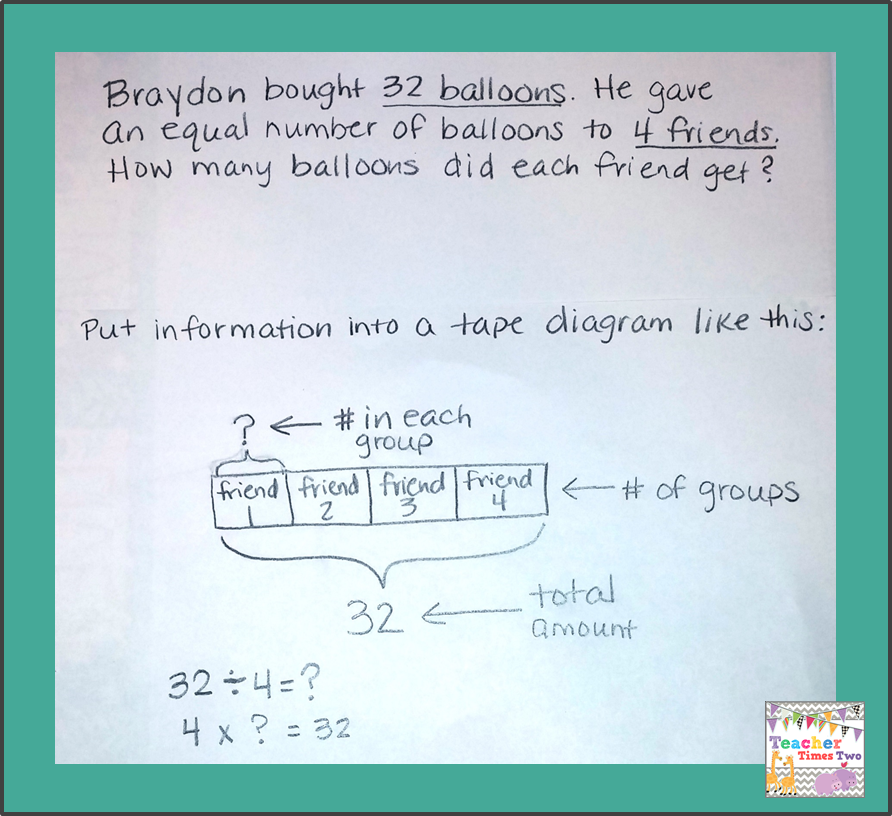 Braydon bought 32 balloons. He gave
an equal number of balloons to 4 friends.
How many balloons did each friend get?
Put information into a tape diagram like this:
? ← # in each
group
friend friend friend friend ← # of groups
1 2 3 4
32 ← total
amount
32 ÷ 4 = ?
4 x ? = 32
Teacher
Times Two